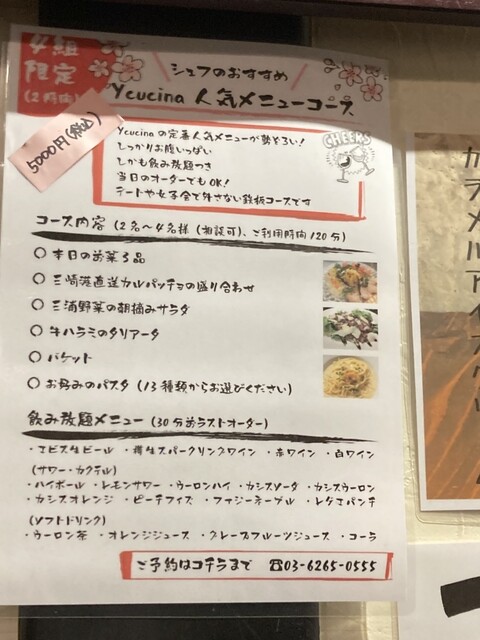 4組
限定
(2時間)
5000円(税込)
シェフのおすすめ
Ycucina 人気メニューコース
Ycucinaの定番人気メニューが勢ぞろい!
しっかりお腹いっぱい
しかも飲み放題つき
当日のオーダーでもOK!
デートや女子会で外さない鉄板コースです
CHEERS
コース内容(2名〜4名様(相談可)、ご利用時間120分)
○ 本日のお菜3品
○ 三崎港直送カルパッチョの盛り合わせ
○ 三浦野菜の朝摘みサラダ
○ 牛ハラミのタリアータ
○ バケット
○ お好みのパスタ(13種類からお選びください)
飲み放題メニュー(30分前ラストオーダー)
・エビス生ビール ・樽生スパークリングワイン ・赤ワイン ・白ワイン
(サワー・カクテル)
・ハイボール ・レモンサワー ・ウーロンハイ ・カシスソーダ ・カシスウーロン
・カシスオレンジ ・ピーチフィズ ・ファジーネーブル ・レゲエパンチ
(ソフトドリンク)
・ウーロン茶 ・オレンジジュース ・グレープフルーツジュース ・コーラ
ご予約はコチラまで ☎03-6265-0555
カラメルアイスクリ